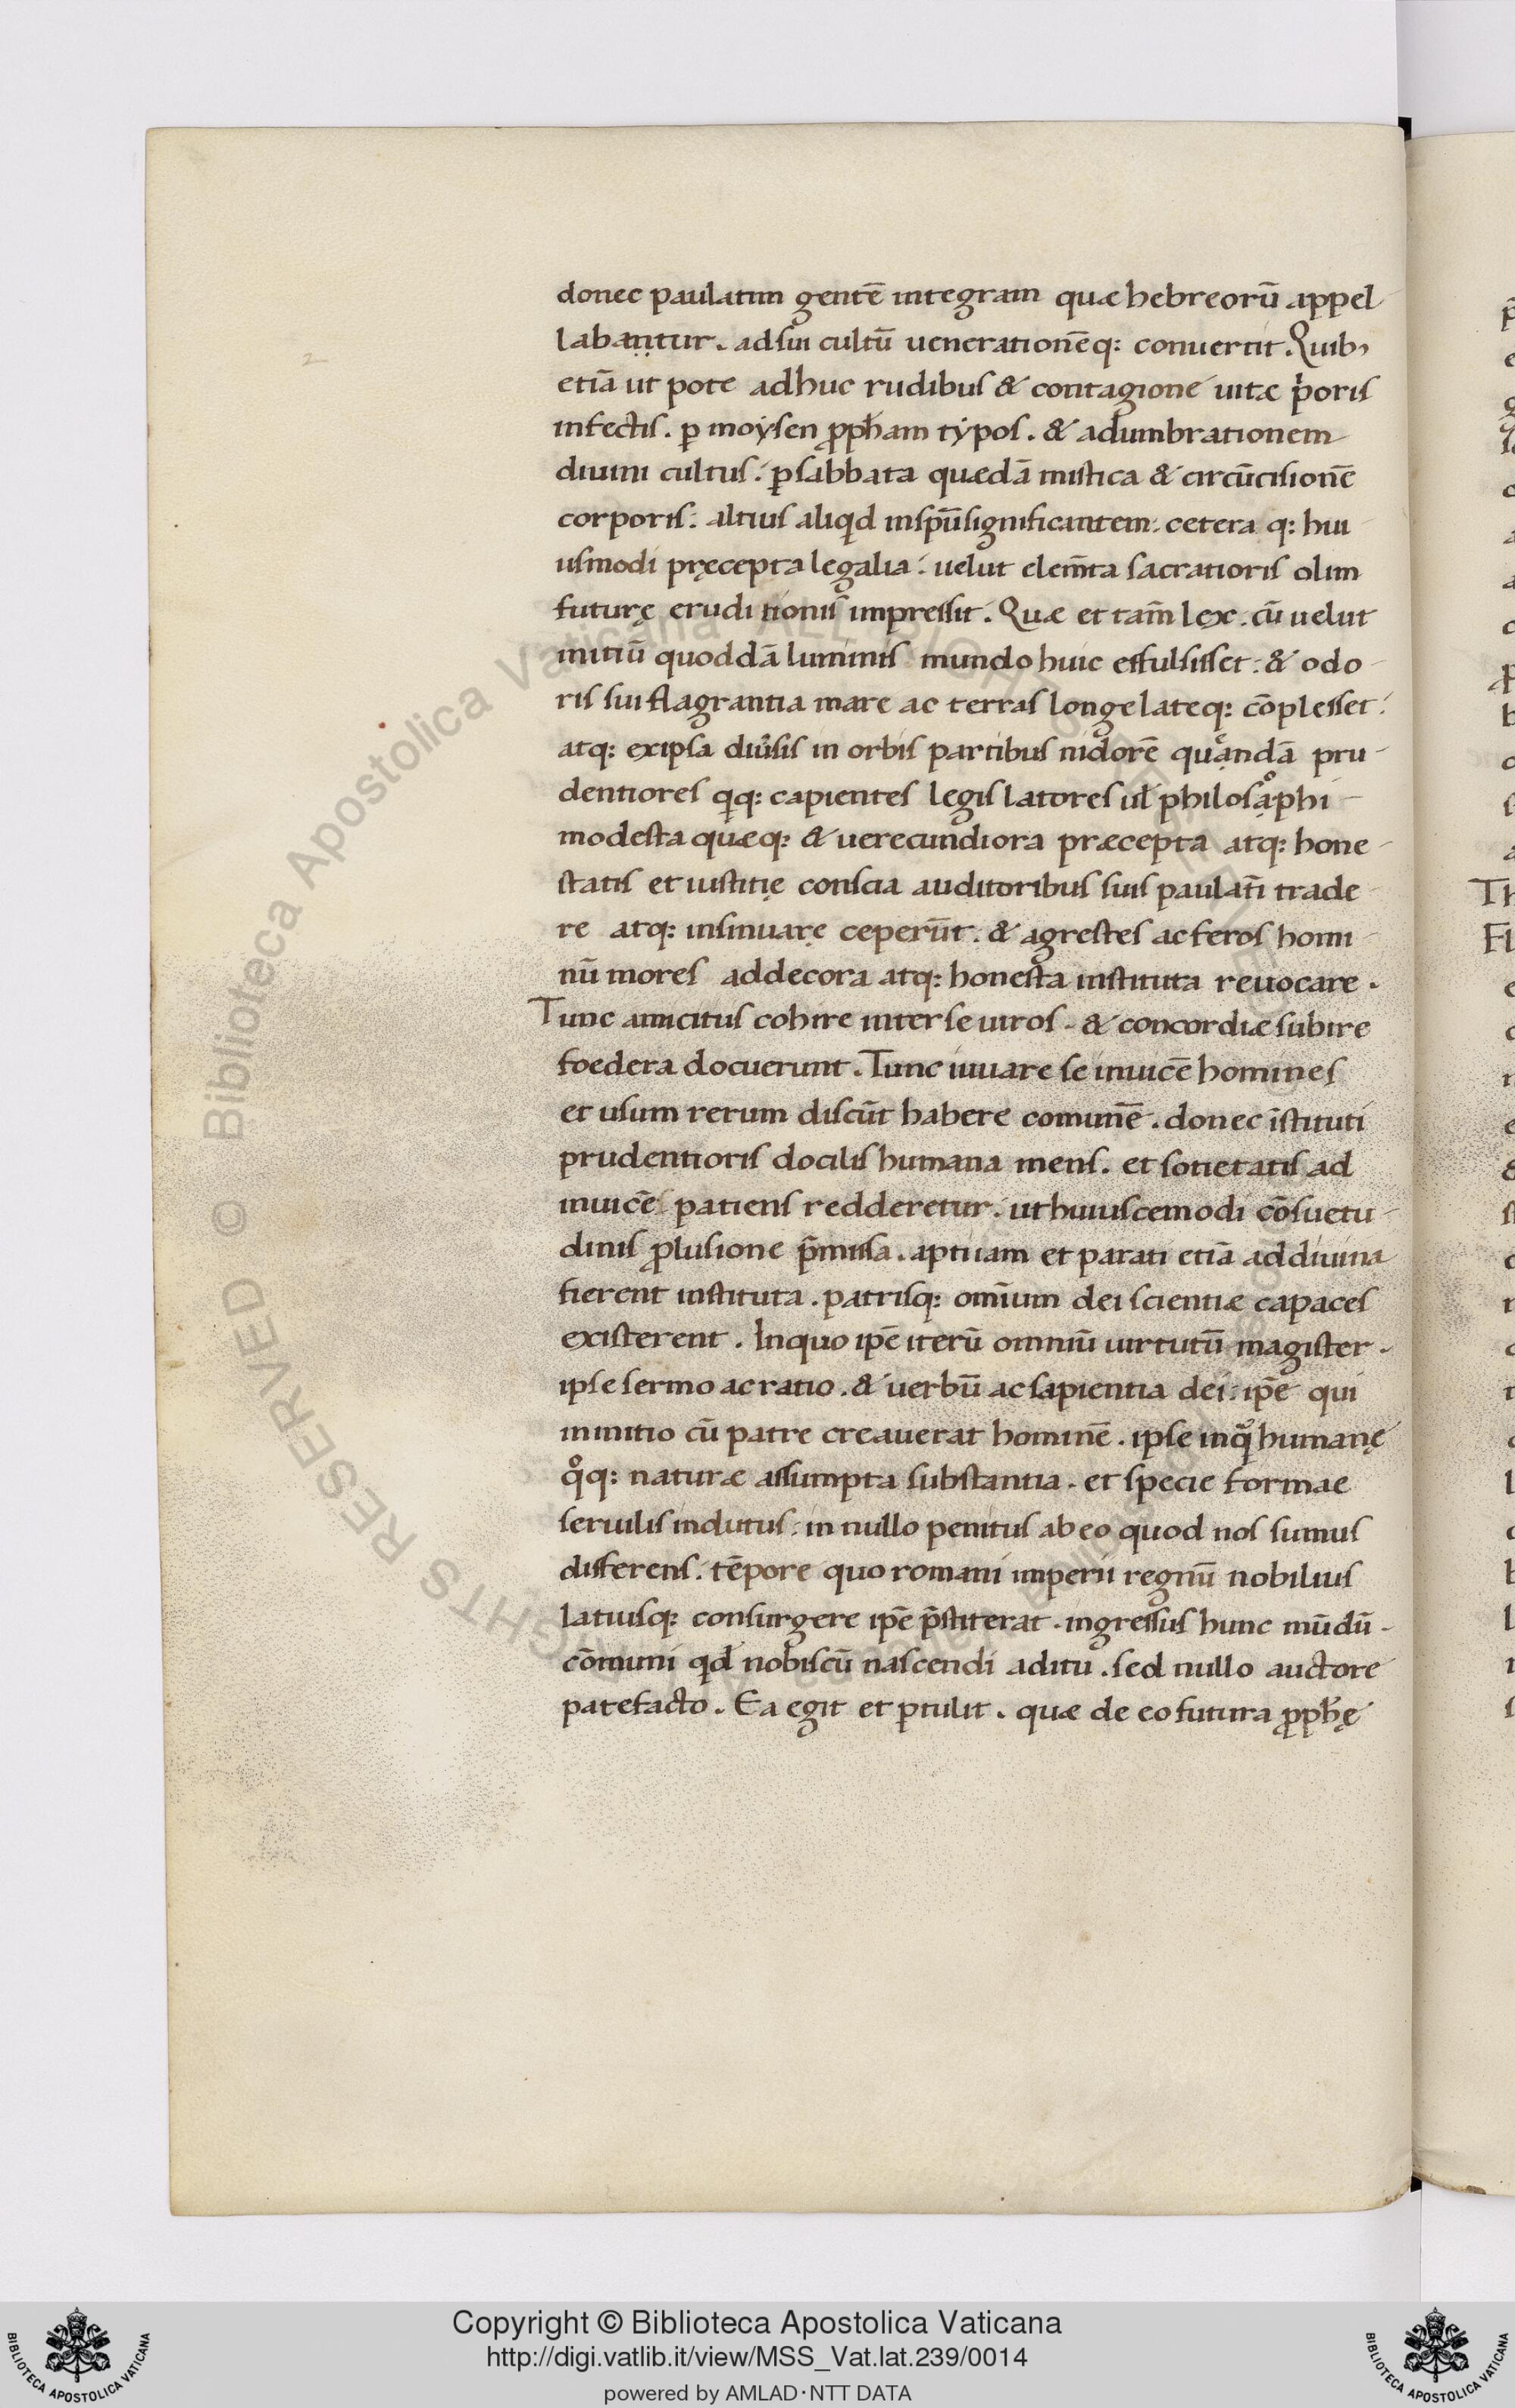 donec paulatim gentē integram quæ hebreorū appel
labantur. ad sui cultū uenerationēq; conuertit. Quib;
etiā ut pote adhuc rudibus & contagione uitæ p̍oris
infectis. ꝑ moẏsen ꝓph̄am tẏpos. & adumbrationem
diuini cultus. ꝑ sabbata quædā mistica & circūcisionē
corporis. altius aliqid in sp̄u significantem. cetera q; hui
usmodi pręcepta legalia. uelut elem̄ta sacratioris olim
futurę eruditionis impressit. Quæ et tam̄ lex. cū uelut
initiū quoddā luminis mundo huic effulsisset. & odo
ris sui flagrantia mare ac terras longe lateq; cōplesset.
atq; ex ipsa diu̓sis in orbis partibus nidorē quandā pru
dentiores qiq; capientes legis latores ul̄ philosaͦphi
modesta quæq; & uerecundiora præcepta atq; hone
statis et iustitię conscia auditoribus suis paulatī trade
re atq; insinuare ceperūt. & agrestes ac feros homi
nū mores ad decora atq; honesta instituta reuocare.
Tunc amicitus cohire inter se uiros. & concordiæ subire
foedera docuerunt. Tunc iuuare se inuicē homines
et usum rerum discūt habere comunē. donec īstituti
prudentioris docilis humana mens. et sotietatis ad
inuicē patiens redderetur. ut huiuscemodi cōsuetu
dinis ꝓlusione p̄missa. apti iam et parati etiā ad diuina
fierent instituta. patrisq; om̄ium dei scientiæ capaces
existerent. In quo ip̄e iterū omniū uirtutū magister.
ipse sermo ac ratio. & uerbū ac sapientia dei. ip̄e qui
in initio cū patre creauerat hominē. ipse inqͣ humanę
qͦq; naturæ assumpta substantia. et specie formae
seruilis indutus. in nullo penitus ab eo quod nos sumus
differens. tēpore quo romani imperii regnū nobilius
latiusq; consurgere ip̄e p̄stiterat. ingressus hunc mūdū.
cōmuni qđ nobiscū nascendi aditu. sed nullo auctore
patefacto. Ea egit et ꝑtulit. quæ de eo futura ꝓph̄ę
Copyright © Biblioteca Apostolica Vaticana
http://digi.vatlib.it/view/MSS_Vat.lat.239/0014
powered by AMLAD·NTT DATA